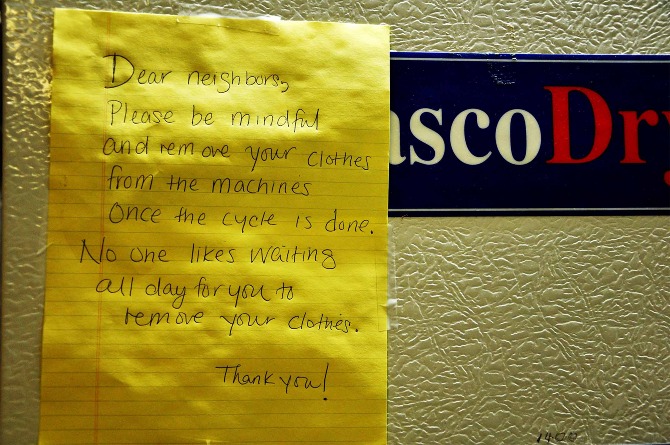 Dear neighbors,
Please be mindful
and remove your clothes
from the machines
Once the cycle is done.
No one likes waiting
all day for you to
remove your clothes.
Thank you!
ascoDry
1400